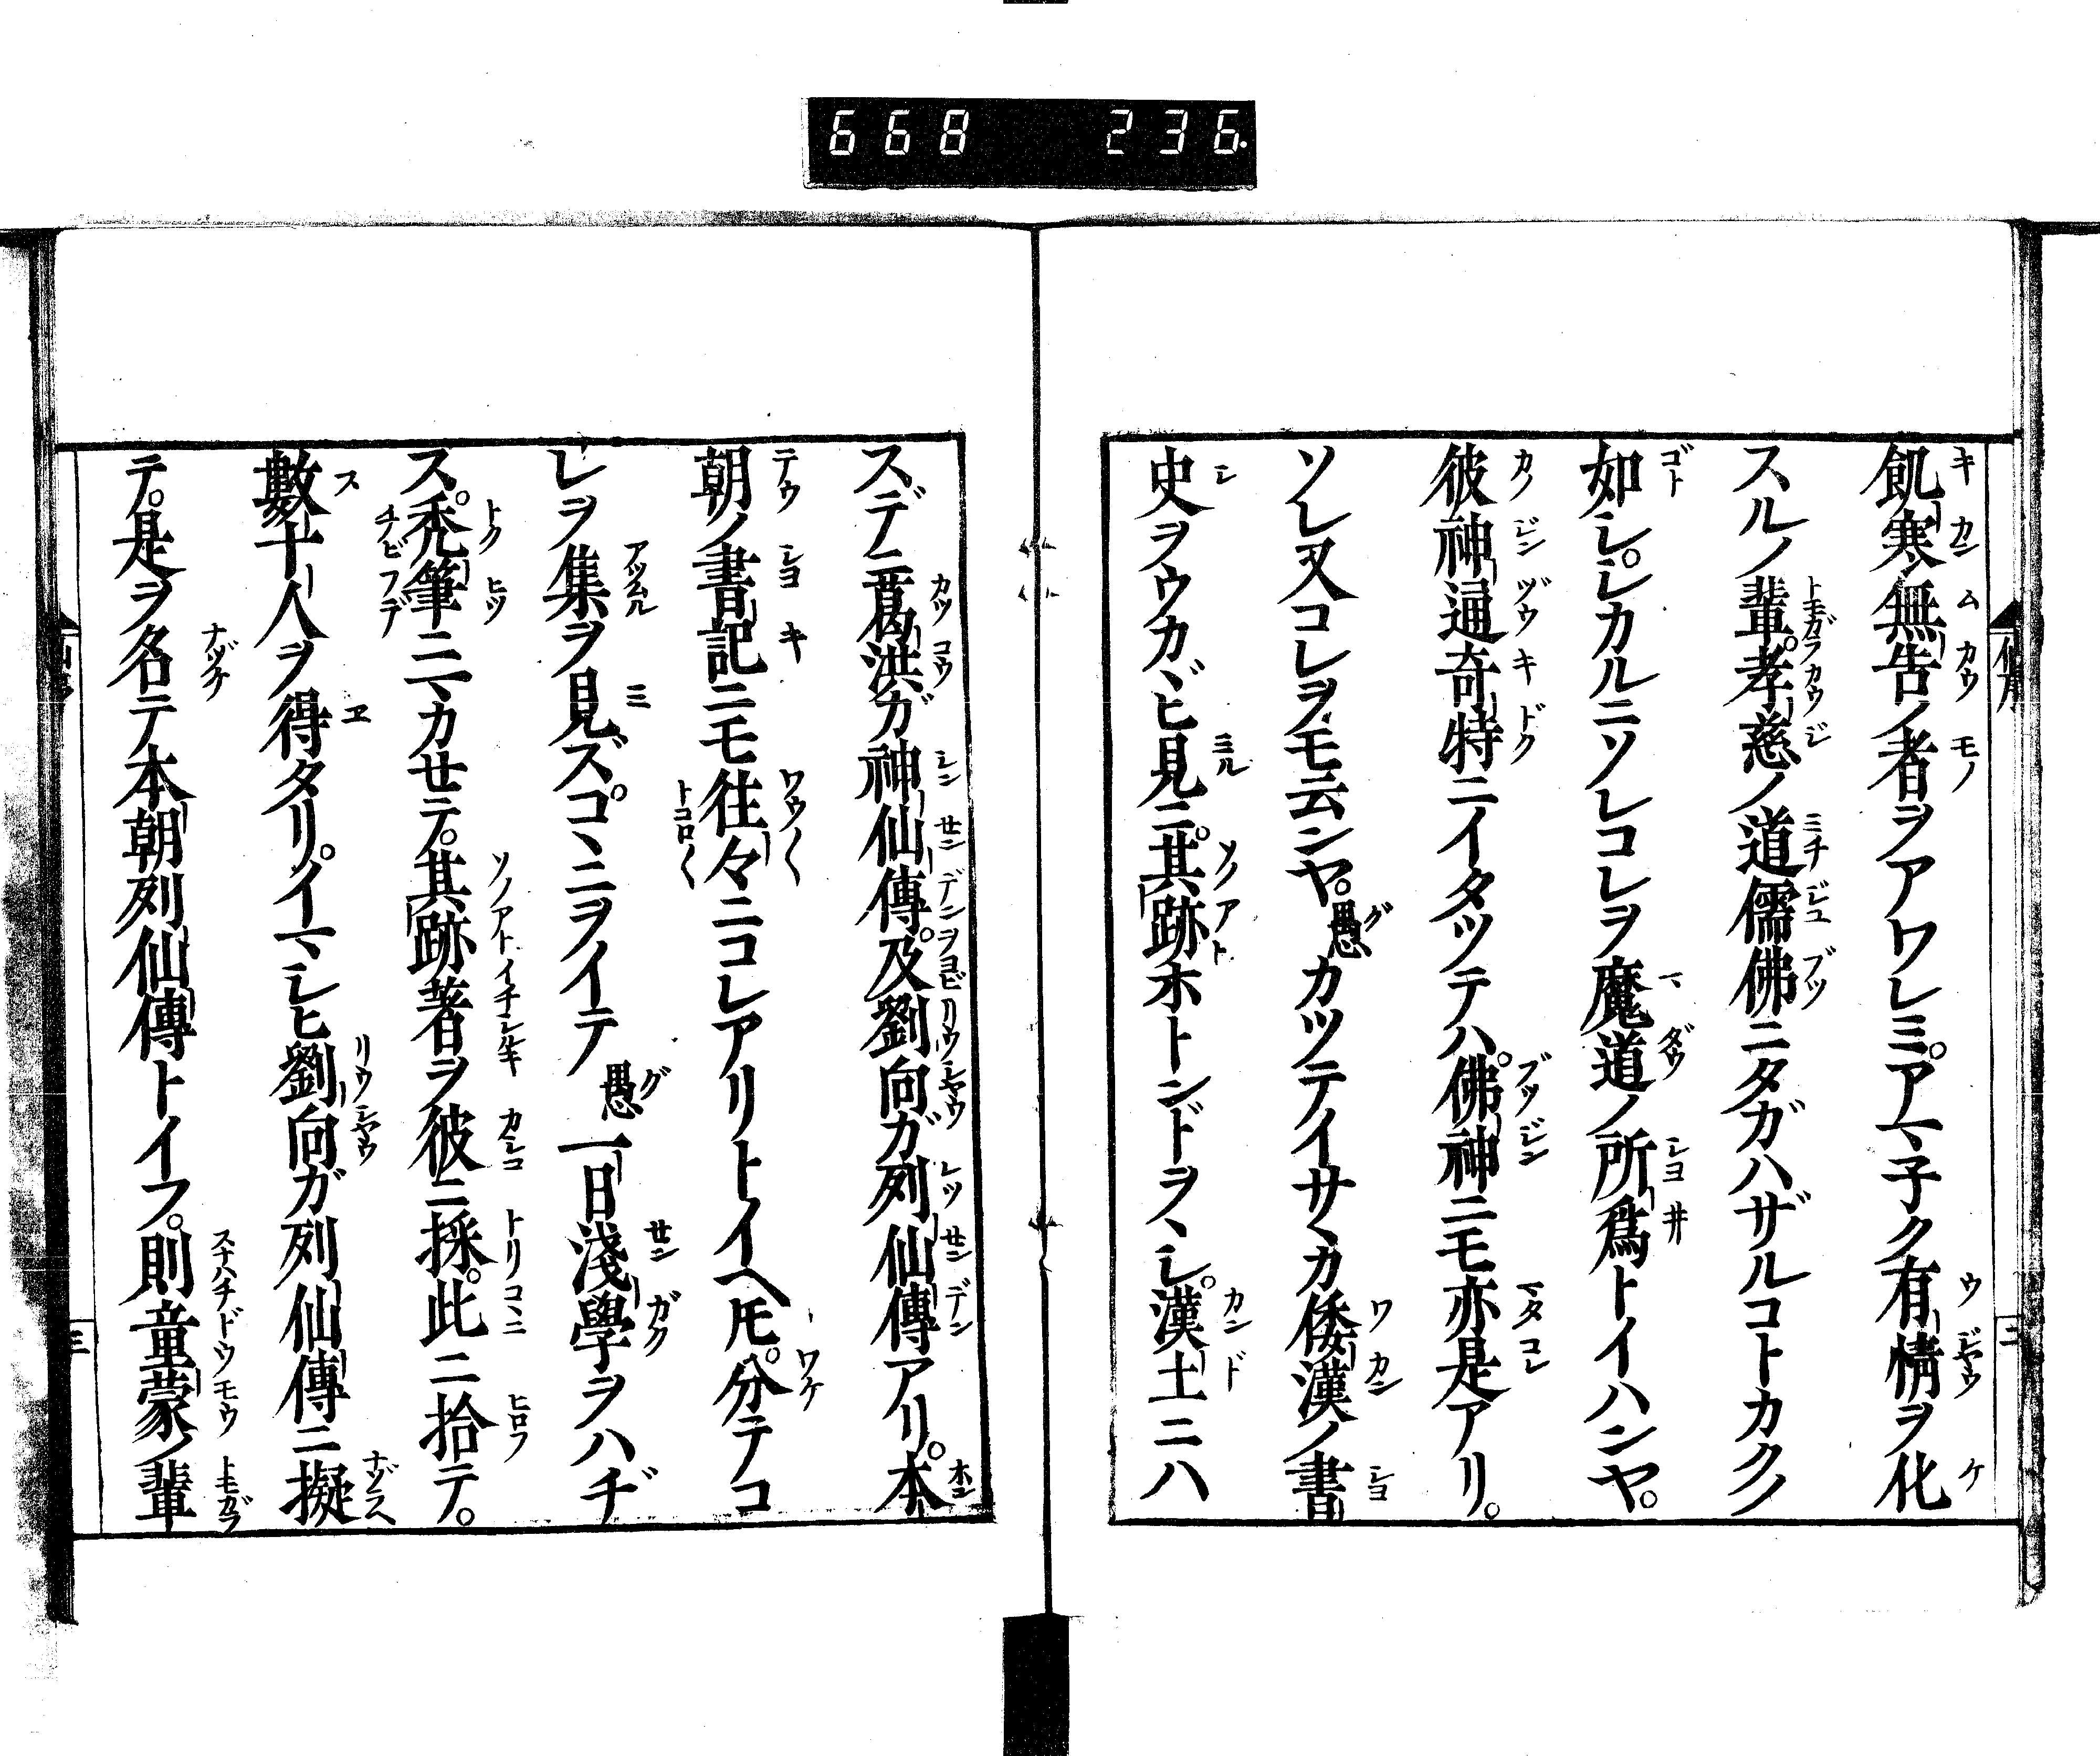 668 236.
飢寒無告ノ者ヲアワレミ。アマ子ク有情ヲ化
スルノ輩。孝慈ノ道儒佛ニタガハザルコトカクノ
如シ。シカルニソレコレヲ魔道ノ所爲トイハンヤ。
彼神通奇特ニイタツテハ。佛神ニモ亦是アリ。
ソレ又コレヲモ云ンヤ。愚カツテイサヽカ倭漢ノ書
史ヲウカヾヒ見ニ。其跡ホトンドヲヽシ。漢土ニハ
スデニ葛洪ガ神仙傳。及劉向ガ列仙傳アリ。本
朝ノ書記ニモ往々ニコレアリトイヘ𪜈。分テコ
レヲ集ヲ見ズ。コヽニヲイテ愚一日淺學ヲハヂ
ス。禿筆ニマカセテ。其跡著ヲ彼ニ採。此ニ拾テ。
數十人ヲ得タリ。イマシヒ劉向ガ列仙傳ニ擬
テ。是ヲ名テ本朝列仙傳トイフ。則童蒙ノ輩